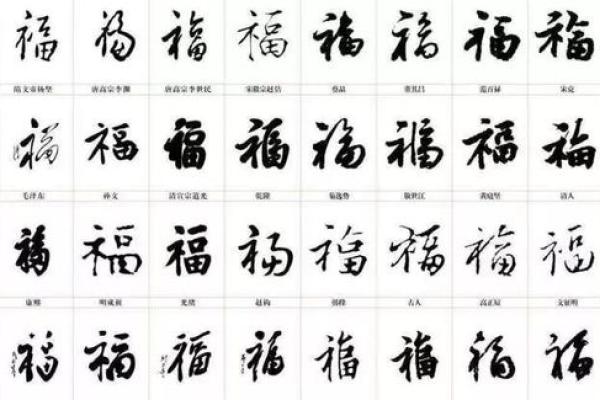 福 福 福 福 福 福 福 福
隋文帝杨坚 唐高宗李渊 唐高宗李世民 宋徽宗赵佶 蔡晶 董其昌 范百禄 宋克
福 福 福 福 福 福 福 福
毛泽东 孙文 清宣宗道光 乾隆 敬世江 黄庭坚 清人
福 福 福 福 福 福 福 福
康熙 明成祖 光绪 赵构 张绛 古人 高正臣 文征明
福 福 福 福 福 福 福 福